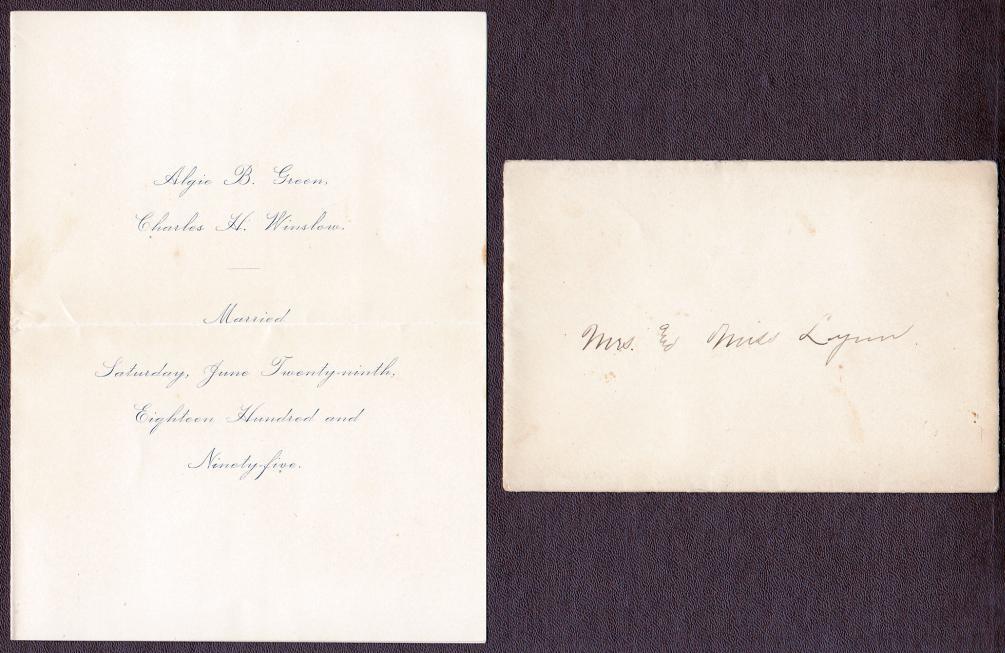 Algie B. Green,
Charles H. Winslow.
Married
Saturday, June Twenty-ninth,
Eighteen Hundred and
Ninety-five.
Mrs. & Miss Lynn.